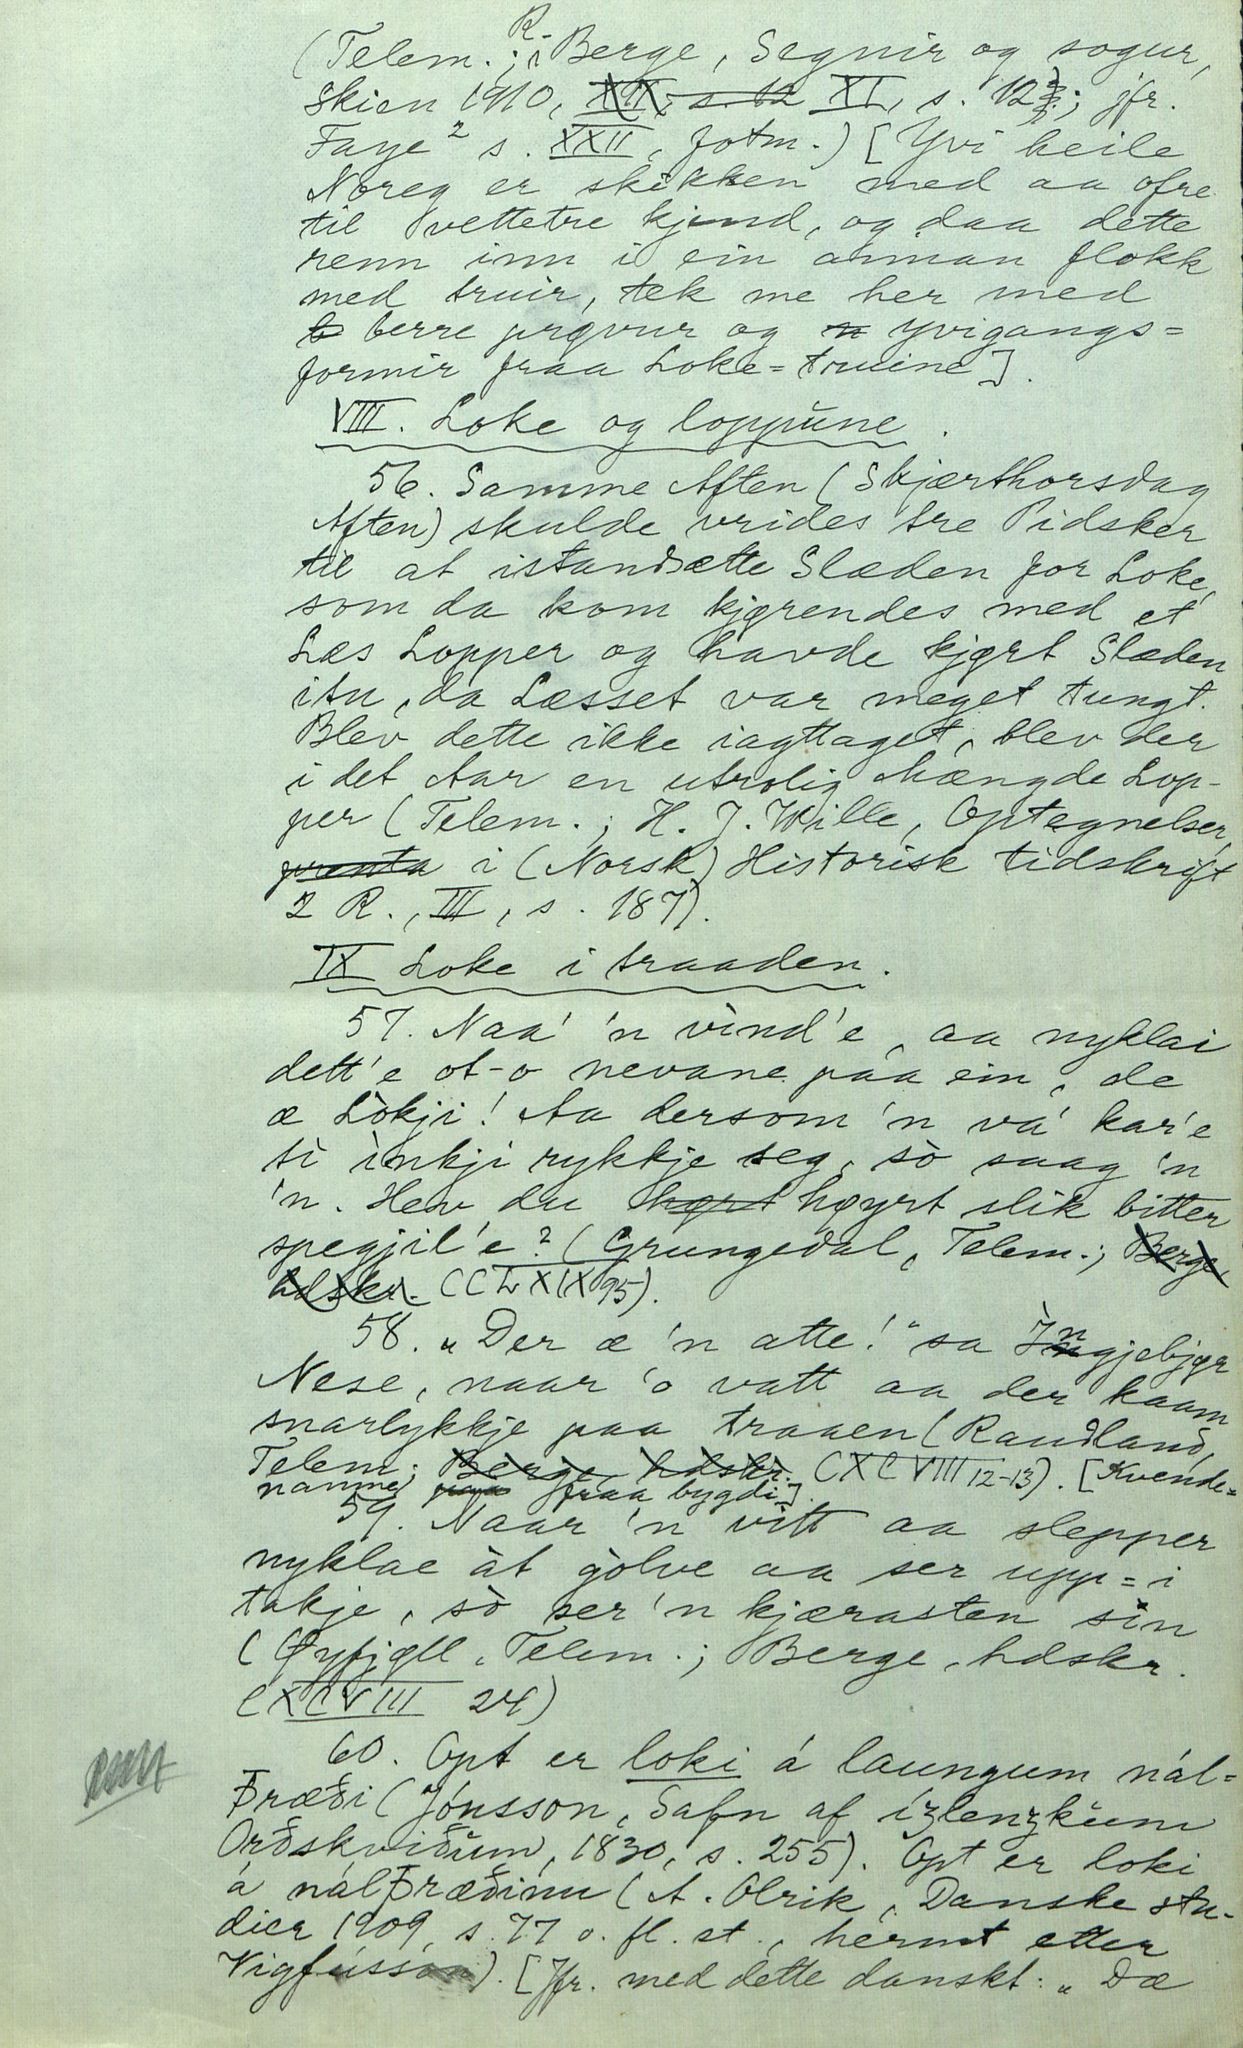 (Telem.; R. Berge, Segnir og sogur,
Skien 1910, XI, s. 12; jfr.
Faye² s. XXII, fotm.) [Yvi heile
Noreg er skikken med aa ofre
til vettetre kjend, og daa dette
renn inn i ein annan flokk
med truir, tek me her med
berre prøvur og yvigangs=
formir fraa Loke=truine].
VIII. Loke og loppune.
56. Samme Aften (Skjærthorsdag
Aften) skulde vrides tre Pidsker
til at istandsætte Slæden for Loke,
som da kom kjørendes med et
Læs Lopper og havde kjørt Slæden
itu, da Læsset var meget tungt.
Blev dette ikke iagttaget, blev der
i det Aar en utrolig Mængde Lop-
per (Telem.; H. J. Wille, Optegnelser,
prenta i (Norsk) Historisk tidskrift
2 R., III, s. 187).
IX Loke i traaden.
57. Naa' 'n vind'e, aa nyklai
dett'e ot-o nevane paa ein, de
æ Lòkji! Aa dersom 'n vá' kar'e
ti inkji rykkje seg, sò saag 'n
'n. Hev du hørt høyrt slik bitter
spegjil'e? (Grungedal, Telem.; Berge,
hdskr. CCLXIX 95).
58. „Der æ 'n atte!" sa Ingjebjør
Nese, naar 'o vatt aa der kaam
snarlykkje paa traaen (Raudland,
Telem; Berge, hdskr. CXCVIII 12-13). [Kvende=
namne fraa bygdi].
59. Naar 'n vitt aa slepper
nyklae åt gòlve aa ser upp=i
takje, sò ser 'n kjærasten sin
(Øyfjell, Telem.; Berge, hdskr.
CXCVIII 24)
60. Opt er loki á laungum nál=
þræði (Jónsson, Safn af íslenzkum
Orðskviðum, 1830, s. 255). Opt er loki
á nálþræðinu (A. Olrik, Danske stu-
dier 1909, s. 77 o. fl. st., hermt etter
Vigfússon). [Jfr. med dette danskt: „Dæ